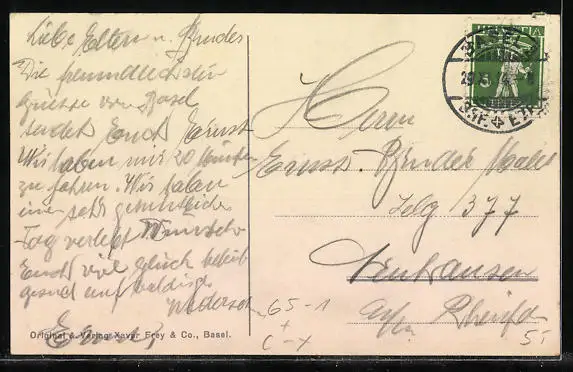 Liebe Eltern u. Bruder
Die freundlichsten
Grüsse von Basel
sendet Euch Ernst
Wir haben nur 20 Minuten
zu fahren. Wir haben
einen sehr gemütlichen
Tag verlebt Wünsche
Euch viel Glück bleibt
gesund auf baldiges
Wiederseh
Ernst
Original & Verlag Xaver Frey & Co., Basel.
HELVETIA
5
BASEL
Herrn
Ernst Maler
377
Neuhausen
am Rheinfall
65-1
+
C-X
5-